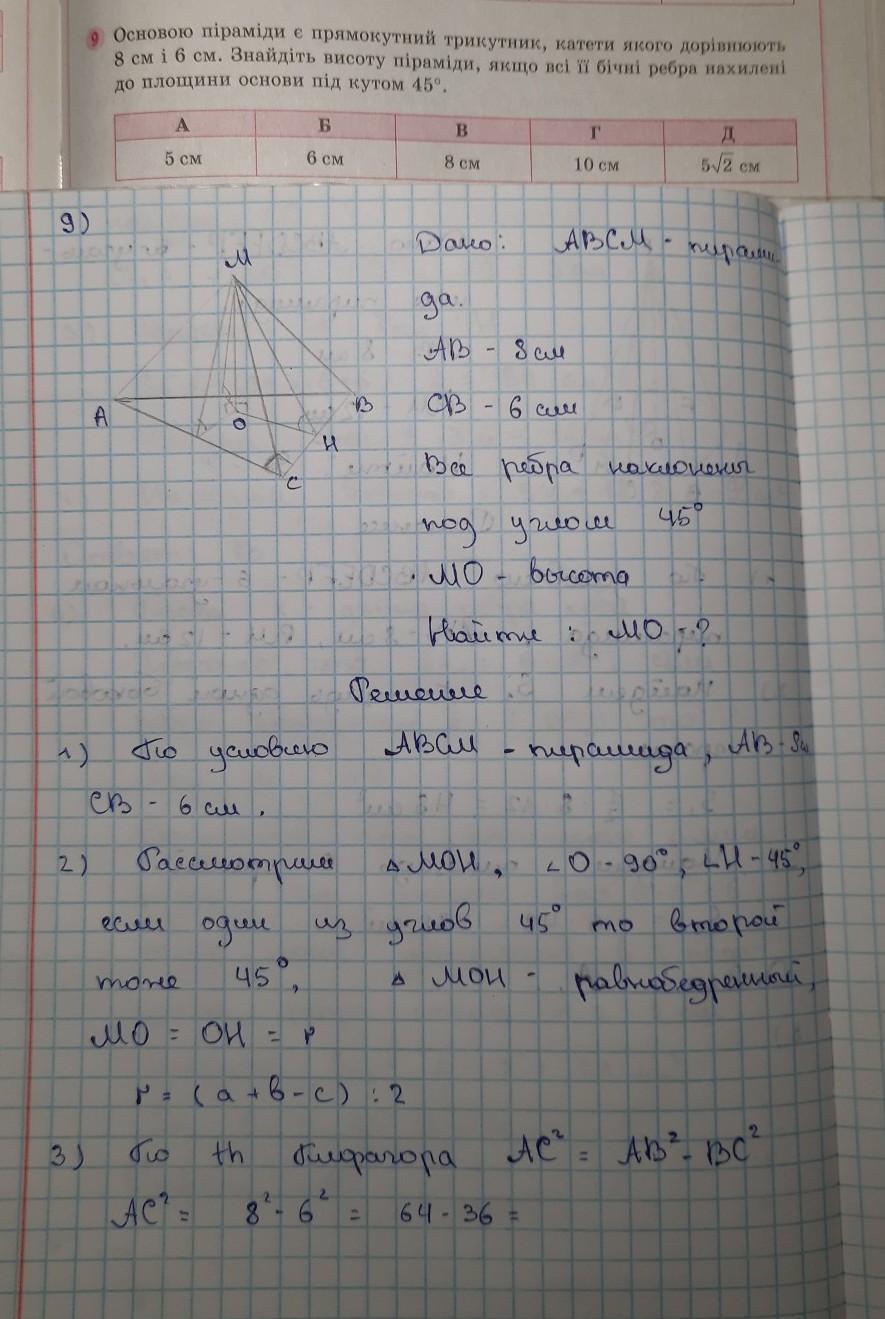 9 Основою піраміди є прямокутний трикутник, катети якого дорівнюють
8 см і 6 см. Знайдіть висоту піраміди, якщо всі її бічні ребра нахилені
до площини основи під кутом 45°.
А Б В Г Д
5 см 6 см 8 см 10 см 5√2 см
9)
M
A
B
O
H
C
Дано: ABCM - пирами
да.
AB - 8 см
CB - 6 см
Все ребра наклонены
под углом 45°
MO - высота
Найти : MO - ?
Решение
1) По условию ABCM - пирамида, AB - 8см
CB - 6 см.
2) Рассмотрим △MOH, ∠O - 90°, ∠H - 45°,
если один из углов 45° то второй
тоже 45°, △ MOH - равнобедренный,
MO = OH = r
r = (a + b - c) : 2
3) По th Пифагора AC² = AB² - BC²
AC² = 8² - 6² = 64 - 36 =